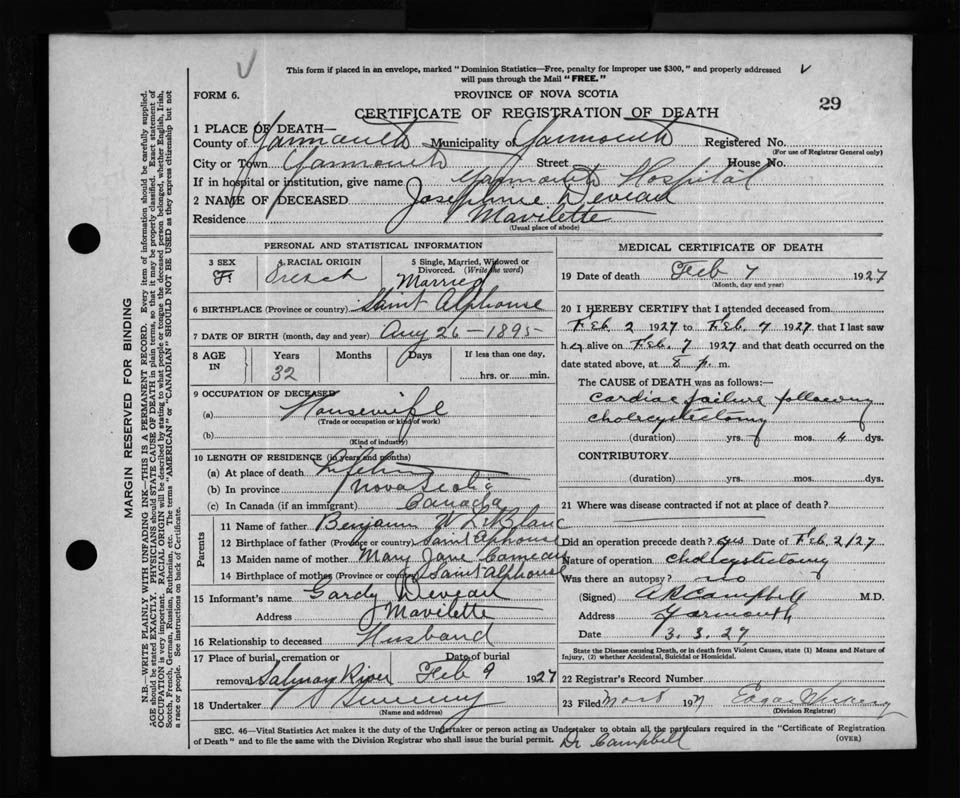 This form if placed in an envelope, marked "Dominion Statistics—Free, penalty for improper use $300," and properly addressed
will pass through the Mail "FREE."
FORM 6.
PROVINCE OF NOVA SCOTIA
29
CERTIFICATE OF REGISTRATION OF DEATH
1 PLACE OF DEATH—
County of Yarmouth Municipality of Yarmouth Registered No.
(For use of Registrar General only)
City or Town Yarmouth Street House No.
If in hospital or institution, give name Yarmouth Hospital
2 NAME OF DECEASED Josephine Deveau
Residence Mavilette
(Usual place of abode)
PERSONAL AND STATISTICAL INFORMATION
3 SEX F
4. RACIAL ORIGIN French
5 Single, Married, Widowed or
Divorced. (Write the word)
Married
6 BIRTHPLACE (Province or country) Saint Alphonse
7 DATE OF BIRTH (month, day and year) Aug 26 – 1895
8 AGE IN Years Months Days If less than one day,
32 hrs. or min.
9 OCCUPATION OF DECEASED
(a) Housewife
(Trade or occupation or kind of work)
(b)
(Kind of industry)
10 LENGTH OF RESIDENCE (in years and months)
(a) At place of death Lifetime
(b) In province Nova Scotia
(c) In Canada (if an immigrant) Canada
Parents
11 Name of father Benjamin W LeBlanc
12 Birthplace of father (Province or country) Saint Alphonse
13 Maiden name of mother Mary Jane Comeau
14 Birthplace of mother (Province or country) Saint Alphonse
15 Informant's name Deveau
Address Mavilette
16 Relationship to deceased Husband
17 Place of burial, cremation or Date of burial
removal Salmon River Feb 9 1927
18 Undertaker Sweeny
(Name and address)
MEDICAL CERTIFICATE OF DEATH
19 Date of death Feb 7 1927
(Month, day and year)
20 I HEREBY CERTIFY that I attended deceased from
Feb. 2 1927 to Feb. 7 1927 that I last saw
her alive on Feb. 7 1927 and that death occurred on the
date stated above, at 8 p. m.
The CAUSE of DEATH was as follows:—
Cardiac failure following
cholecystectomy
(duration) yrs. mos. 4 dys.
CONTRIBUTORY
(duration) yrs. mos. dys.
21 Where was disease contracted if not at place of death?
Did an operation precede death? yes Date of Feb 2/27
Nature of operation Cholecystectomy
Was there an autopsy? no
(Signed) A R Campbell M.D.
Address Yarmouth
Date 3. 3. 27
State the Disease causing Death, or in death from Violent Causes, state (1) Means and Nature of
Injury, (2) whether Accidental, Suicidal or Homicidal.
22 Registrar's Record Number
23 Filed 192
(Division Registrar)
SEC. 46—Vital Statistics Act makes it the duty of the Undertaker or person acting as Undertaker to obtain all the particulars required in the "Certificate of Registration
of Death" and to file the same with the Division Registrar who shall issue the burial permit. Dr Campbell (OVER)
MARGIN RESERVED FOR BINDING
N.B.—WRITE PLAINLY WITH UNFADING INK—THIS IS A PERMANENT RECORD. Every item of information should be carefully supplied.
AGE should be stated EXACTLY. PHYSICIANS should STATE CAUSE OF DEATH in plain terms, so that it may be properly classified. Exact statement of
OCCUPATION is very important. RACIAL ORIGIN will be described by stating to what people or tongue the deceased person belonged, whether English, Irish,
Scotch, French, German, Russian, Ruthenian, etc. The terms "AMERICAN" or "CANADIAN" SHOULD NOT BE USED as they express citizenship but not
a race or people. See instructions on back of Certificate.